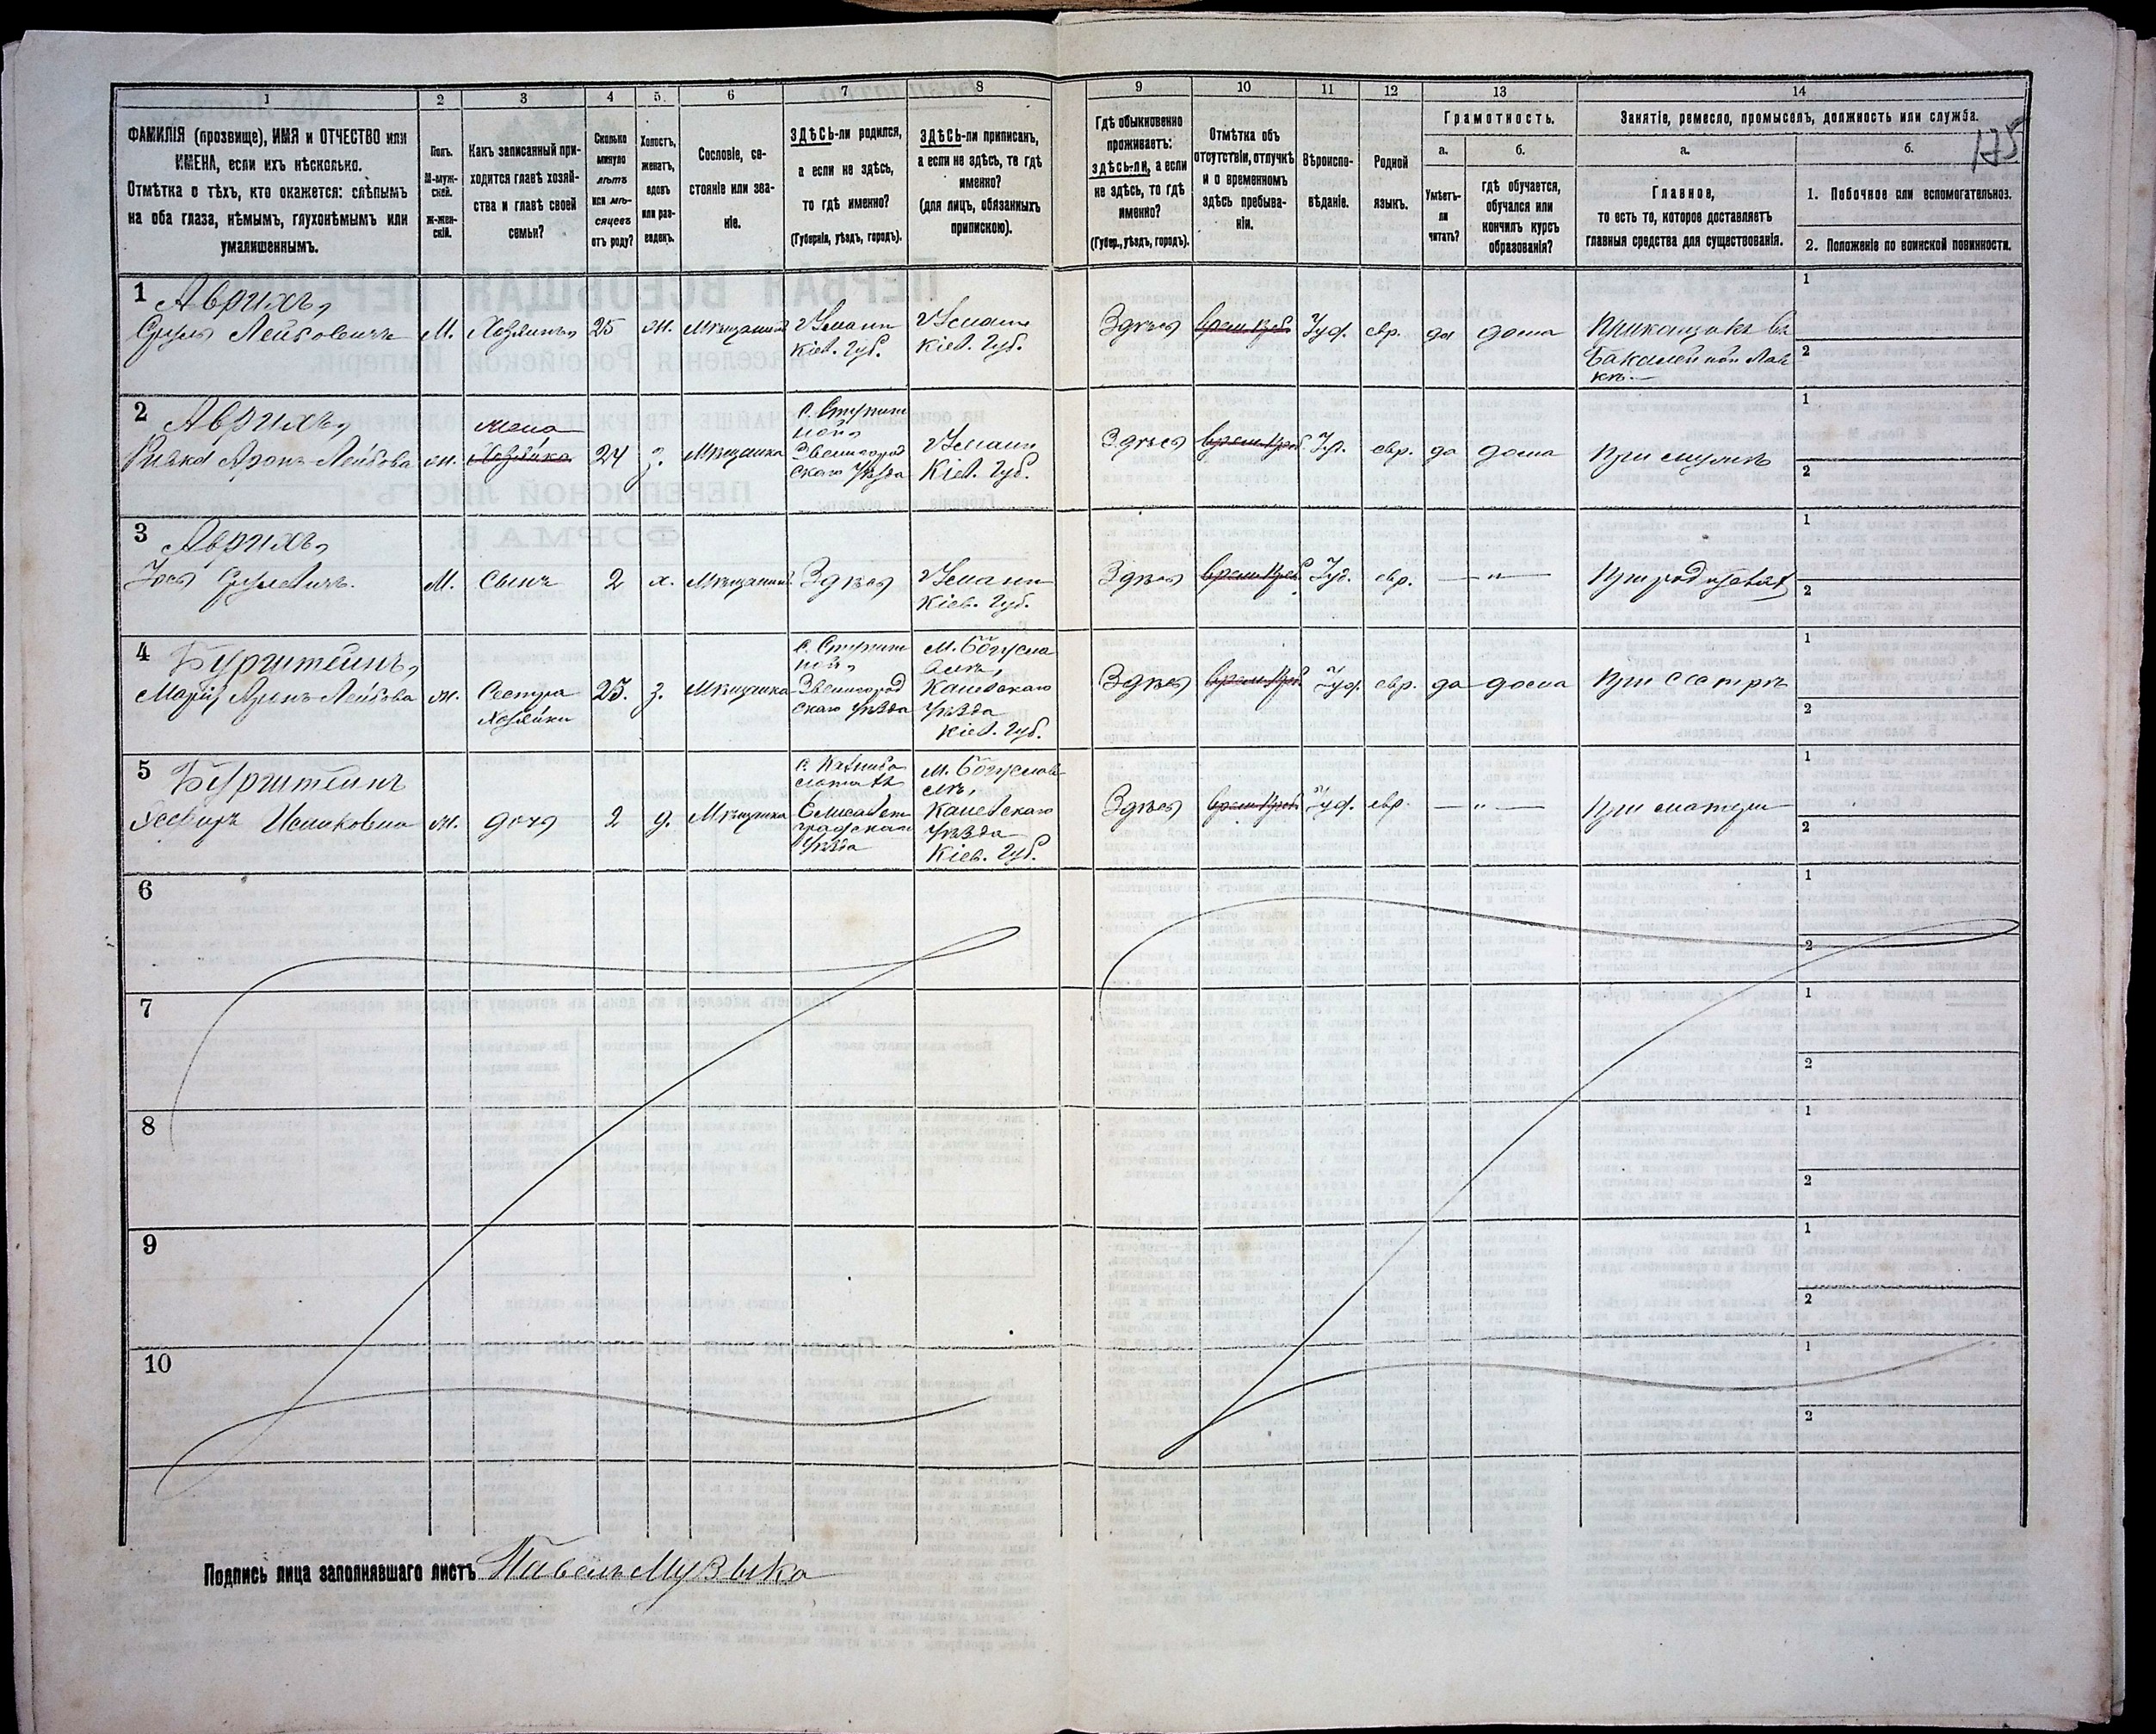 1
2
3
4
5.
6
7
8
9
10
11
12
13
14
ФАМИЛІЯ (прозвище), ИМЯ и ОТЧЕСТВО или
ИМЕНА, если ихъ нѣсколько.
Отмѣтка о тѣхъ, кто окажется: слѣпымъ
на оба глаза, нѣмымъ, глухонѣмымъ или
умалишеннымъ.
Полъ.
М-муж-
ской.
Ж-жен-
скій.
Какъ записанный при-
ходится главѣ хозяй-
ства и главѣ своей
семьи?
Сколько
минуло
лѣтъ
или мѣ-
сяцевъ
отъ роду?
Холостъ,
женатъ,
вдовъ
или раз-
веденъ.
Сословіе, со-
стояніе или зва-
ніе.
ЗДѢСЬ-ли родился,
а если не здѣсь,
то гдѣ именно?
(Губернія, уѣздъ, городъ).
ЗДѢСЬ-ли приписанъ,
а если не здѣсь, то гдѣ
именно?
(для лицъ, обязанныхъ
припискою).
Гдѣ обыкновенно
проживаетъ:
здѣсь-ли, а если
не здѣсь, то гдѣ
именно?
(Губер., уѣздъ, городъ).
Отмѣтка объ
отсутствіи, отлучкѣ
и о временномъ
здѣсь пребыва-
ніи.
Вѣроиспо-
вѣданіе.
Родной
языкъ.
Грамотность.
а.
Умѣетъ-
ли
читать?
б.
гдѣ обучается,
обучался или
кончилъ курсъ
образованія?
Занятіе, ремесло, промыселъ, должность или служба.
175
а.
Главное,
то есть то, которое доставляетъ
главныя средства для существованія.
б.
1. Побочное или вспомогательное.
2. Положеніе по воинской повинности.
1 Аврихъ,
Сруль Лейбовичъ М. Хозяинъ 25 ж. Мѣщанинъ Умани Кіев. Губ. Умани Кіев. Губ. Здѣсь врем. преб. Іуд. евр. да дома Прикащикъ въ
бакалейной Лав
кѣ.
1
2
2 Аврихъ,
Ривка Аронъ-Лейбова ж. жена Хозяйка 24 з. Мѣщанка Звенигород
скаго Уѣзда Умани Кіев. Губ. Здѣсь врем. преб. Іуд. евр. да дома При мужѣ
1
2
3 Аврихъ,
Іось Срулевичъ. М. Сынъ 2 х. Мѣщанинъ Здѣсь Умани Кіев. Губ. Здѣсь врем. преб. Іуд. евр. — " — При родителяхъ
1
2
4 Бурштейнъ,
Аронъ-Лейбова ж. Сестра Хозяйки 25. з. Мѣщанка Звенигород
скаго уѣзда М. Богусла
Каневскаго
Уѣзда
Кіев. Губ. Здѣсь врем. преб. Іуд. евр. да дома При сестрѣ
1
2
5 Бурштейнъ
Эсфирь ж. дочь 2 д. Мѣщанка Елисавет
градскаго
Уѣзда
Каневскаго
Уѣзда
Кіев. Губ. Здѣсь врем. преб. Іуд. евр. — " — При матери
1
2
6
1
2
7
1
2
8
1
2
9
1
2
10
1
2
Подпись лица заполнявшаго листъ Павелъ Музыка